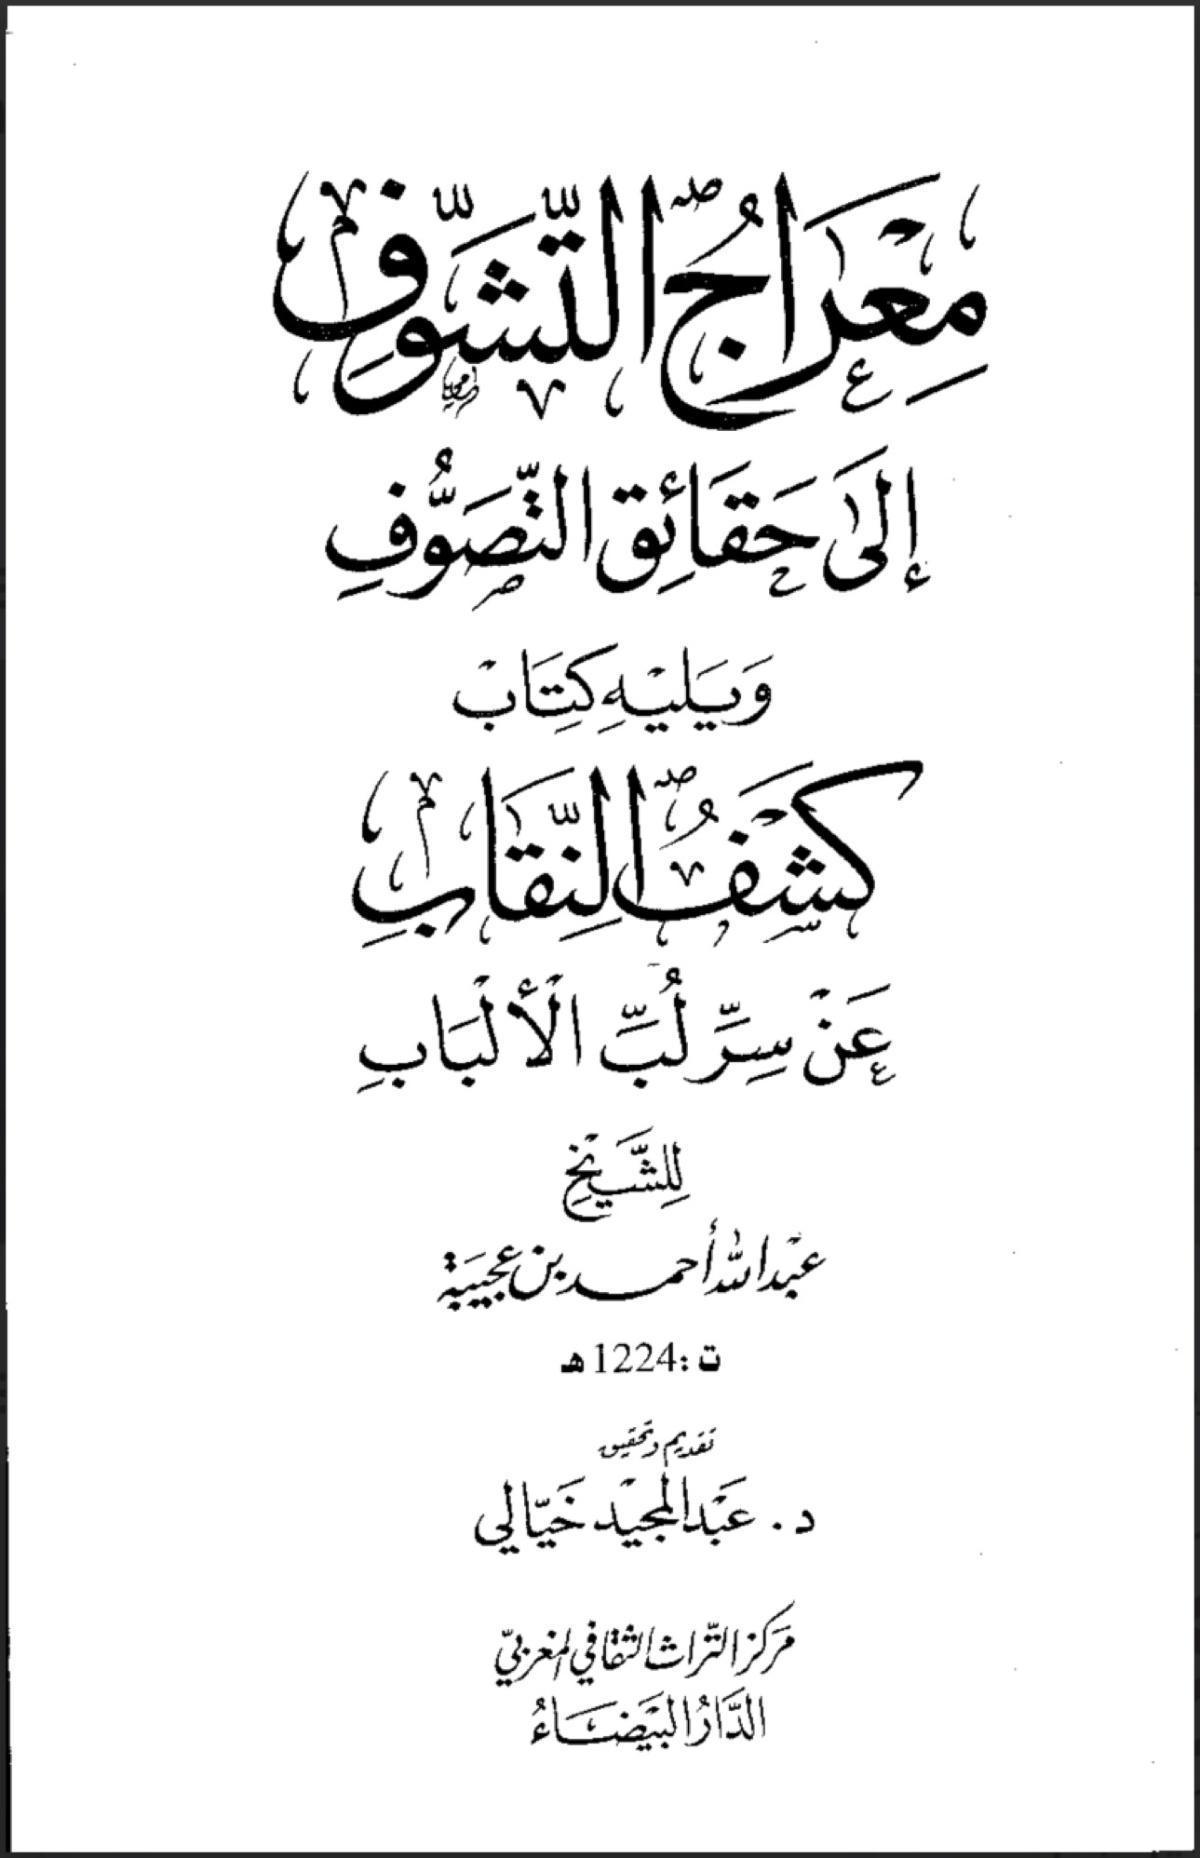 مِعْرَاجُ التَّشَوُّفِ
إِلَىٰ حَقَائِقِ التَّصَوُّفِ
وَيَلِيْهِ كِتَابْ
كَشْفُ النِّقَابِ
عَنْ سِرِّ لُبِّ الْأَلْبَابِ
لِلشَّيْخِ
عبْد اللّٰه أحمد بن عجيبَة
ت :1224 هـ
تقديم وتحقيق
د. عَبْد المجيْد خَيَّالي
مَركز التّراث الثقافي المغربيّ
الدَّارُ البَيْضَاءُ